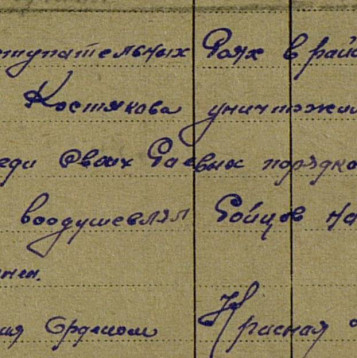 ступательных боях в рай
Костякова уничтожил
еди своих боевых порядко
воодушевлял бойцов на
нен.
ия Орденом Красная